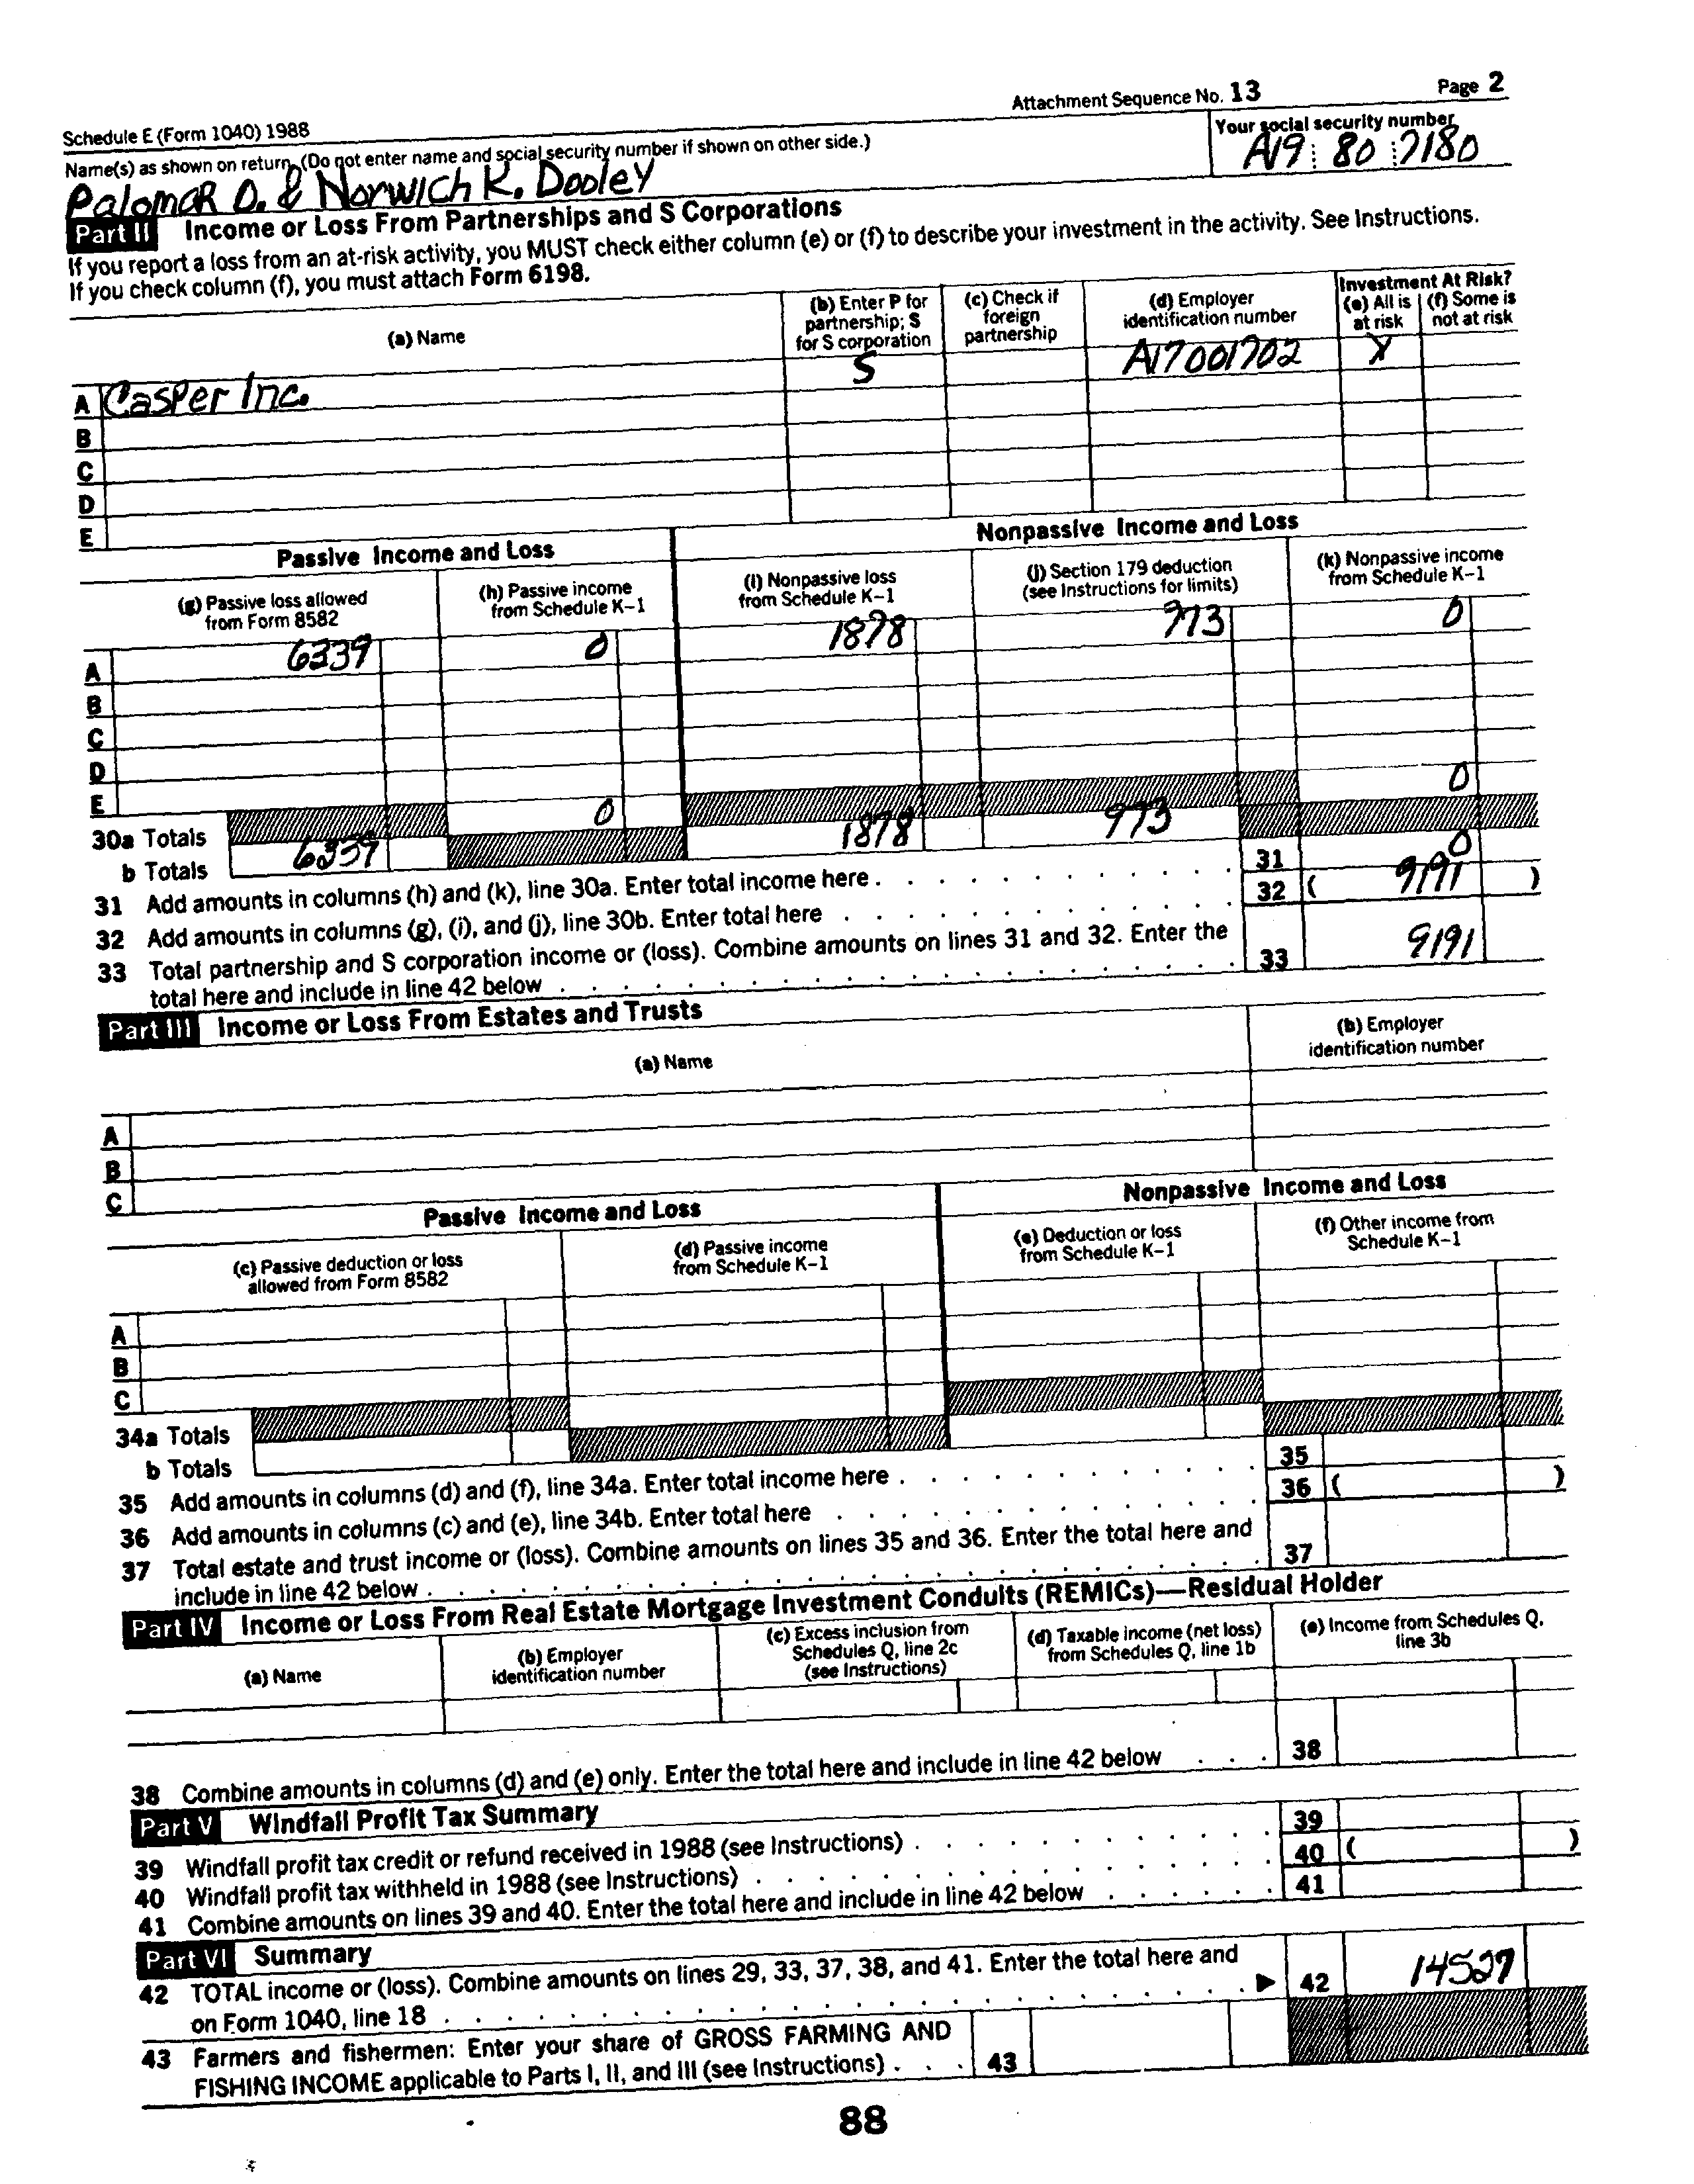 Schedule E (Form 1040) 1988 Attachment Sequence No. 13 Page 2
Name(s) as shown on return. (Do not enter name and social security number if shown on other side.) Your social security number
Palomar D. & Norwich K. Dooley A19 80 7180
Part II Income or Loss From Partnerships and S Corporations
If you report a loss from an at-risk activity, you MUST check either column (e) or (f) to describe your investment in the activity. See Instructions.
If you check column (f), you must attach Form 6198.
(a) Name
(b) Enter P for partnership; S for S corporation
(c) Check if foreign partnership
(d) Employer identification number
Investment At Risk?
(e) All is at risk
(f) Some is not at risk
A Casper Inc. S A17001702 X
B
C
D
E
Passive Income and Loss Nonpassive Income and Loss
(g) Passive loss allowed from Form 8582
(h) Passive income from Schedule K-1
(i) Nonpassive loss from Schedule K-1
(j) Section 179 deduction (see Instructions for limits)
(k) Nonpassive income from Schedule K-1
A 6339 0 1878 973 0
B
C
D
E
30a Totals 0 0
b Totals 6339 1878 973
31 Add amounts in columns (h) and (k), line 30a. Enter total income here . 31 0
32 Add amounts in columns (g), (i), and (j), line 30b. Enter total here 32 ( 9191 )
33 Total partnership and S corporation income or (loss). Combine amounts on lines 31 and 32. Enter the
total here and include in line 42 below 33 9191
Part III Income or Loss From Estates and Trusts
(a) Name
(b) Employer identification number
A
B
C
Passive Income and Loss Nonpassive Income and Loss
(c) Passive deduction or loss allowed from Form 8582
(d) Passive income from Schedule K-1
(e) Deduction or loss from Schedule K-1
(f) Other income from Schedule K-1
A
B
C
34a Totals
b Totals
35 Add amounts in columns (d) and (f), line 34a. Enter total income here . 35
36 Add amounts in columns (c) and (e), line 34b. Enter total here 36 ( )
37 Total estate and trust income or (loss). Combine amounts on lines 35 and 36. Enter the total here and
include in line 42 below . 37
Part IV Income or Loss From Real Estate Mortgage Investment Conduits (REMICs)—Residual Holder
(a) Name
(b) Employer identification number
(c) Excess inclusion from Schedules Q, line 2c (see Instructions)
(d) Taxable income (net loss) from Schedules Q, line 1b
(e) Income from Schedules Q, line 3b
38 Combine amounts in columns (d) and (e) only. Enter the total here and include in line 42 below 38
Part V Windfall Profit Tax Summary
39 Windfall profit tax credit or refund received in 1988 (see Instructions) . 39
40 Windfall profit tax withheld in 1988 (see Instructions) 40 ( )
41 Combine amounts on lines 39 and 40. Enter the total here and include in line 42 below 41
Part VI Summary
42 TOTAL income or (loss). Combine amounts on lines 29, 33, 37, 38, and 41. Enter the total here and
on Form 1040, line 18 ▶ 42 14527
43 Farmers and fishermen: Enter your share of GROSS FARMING AND
FISHING INCOME applicable to Parts I, II, and III (see Instructions) . 43
88